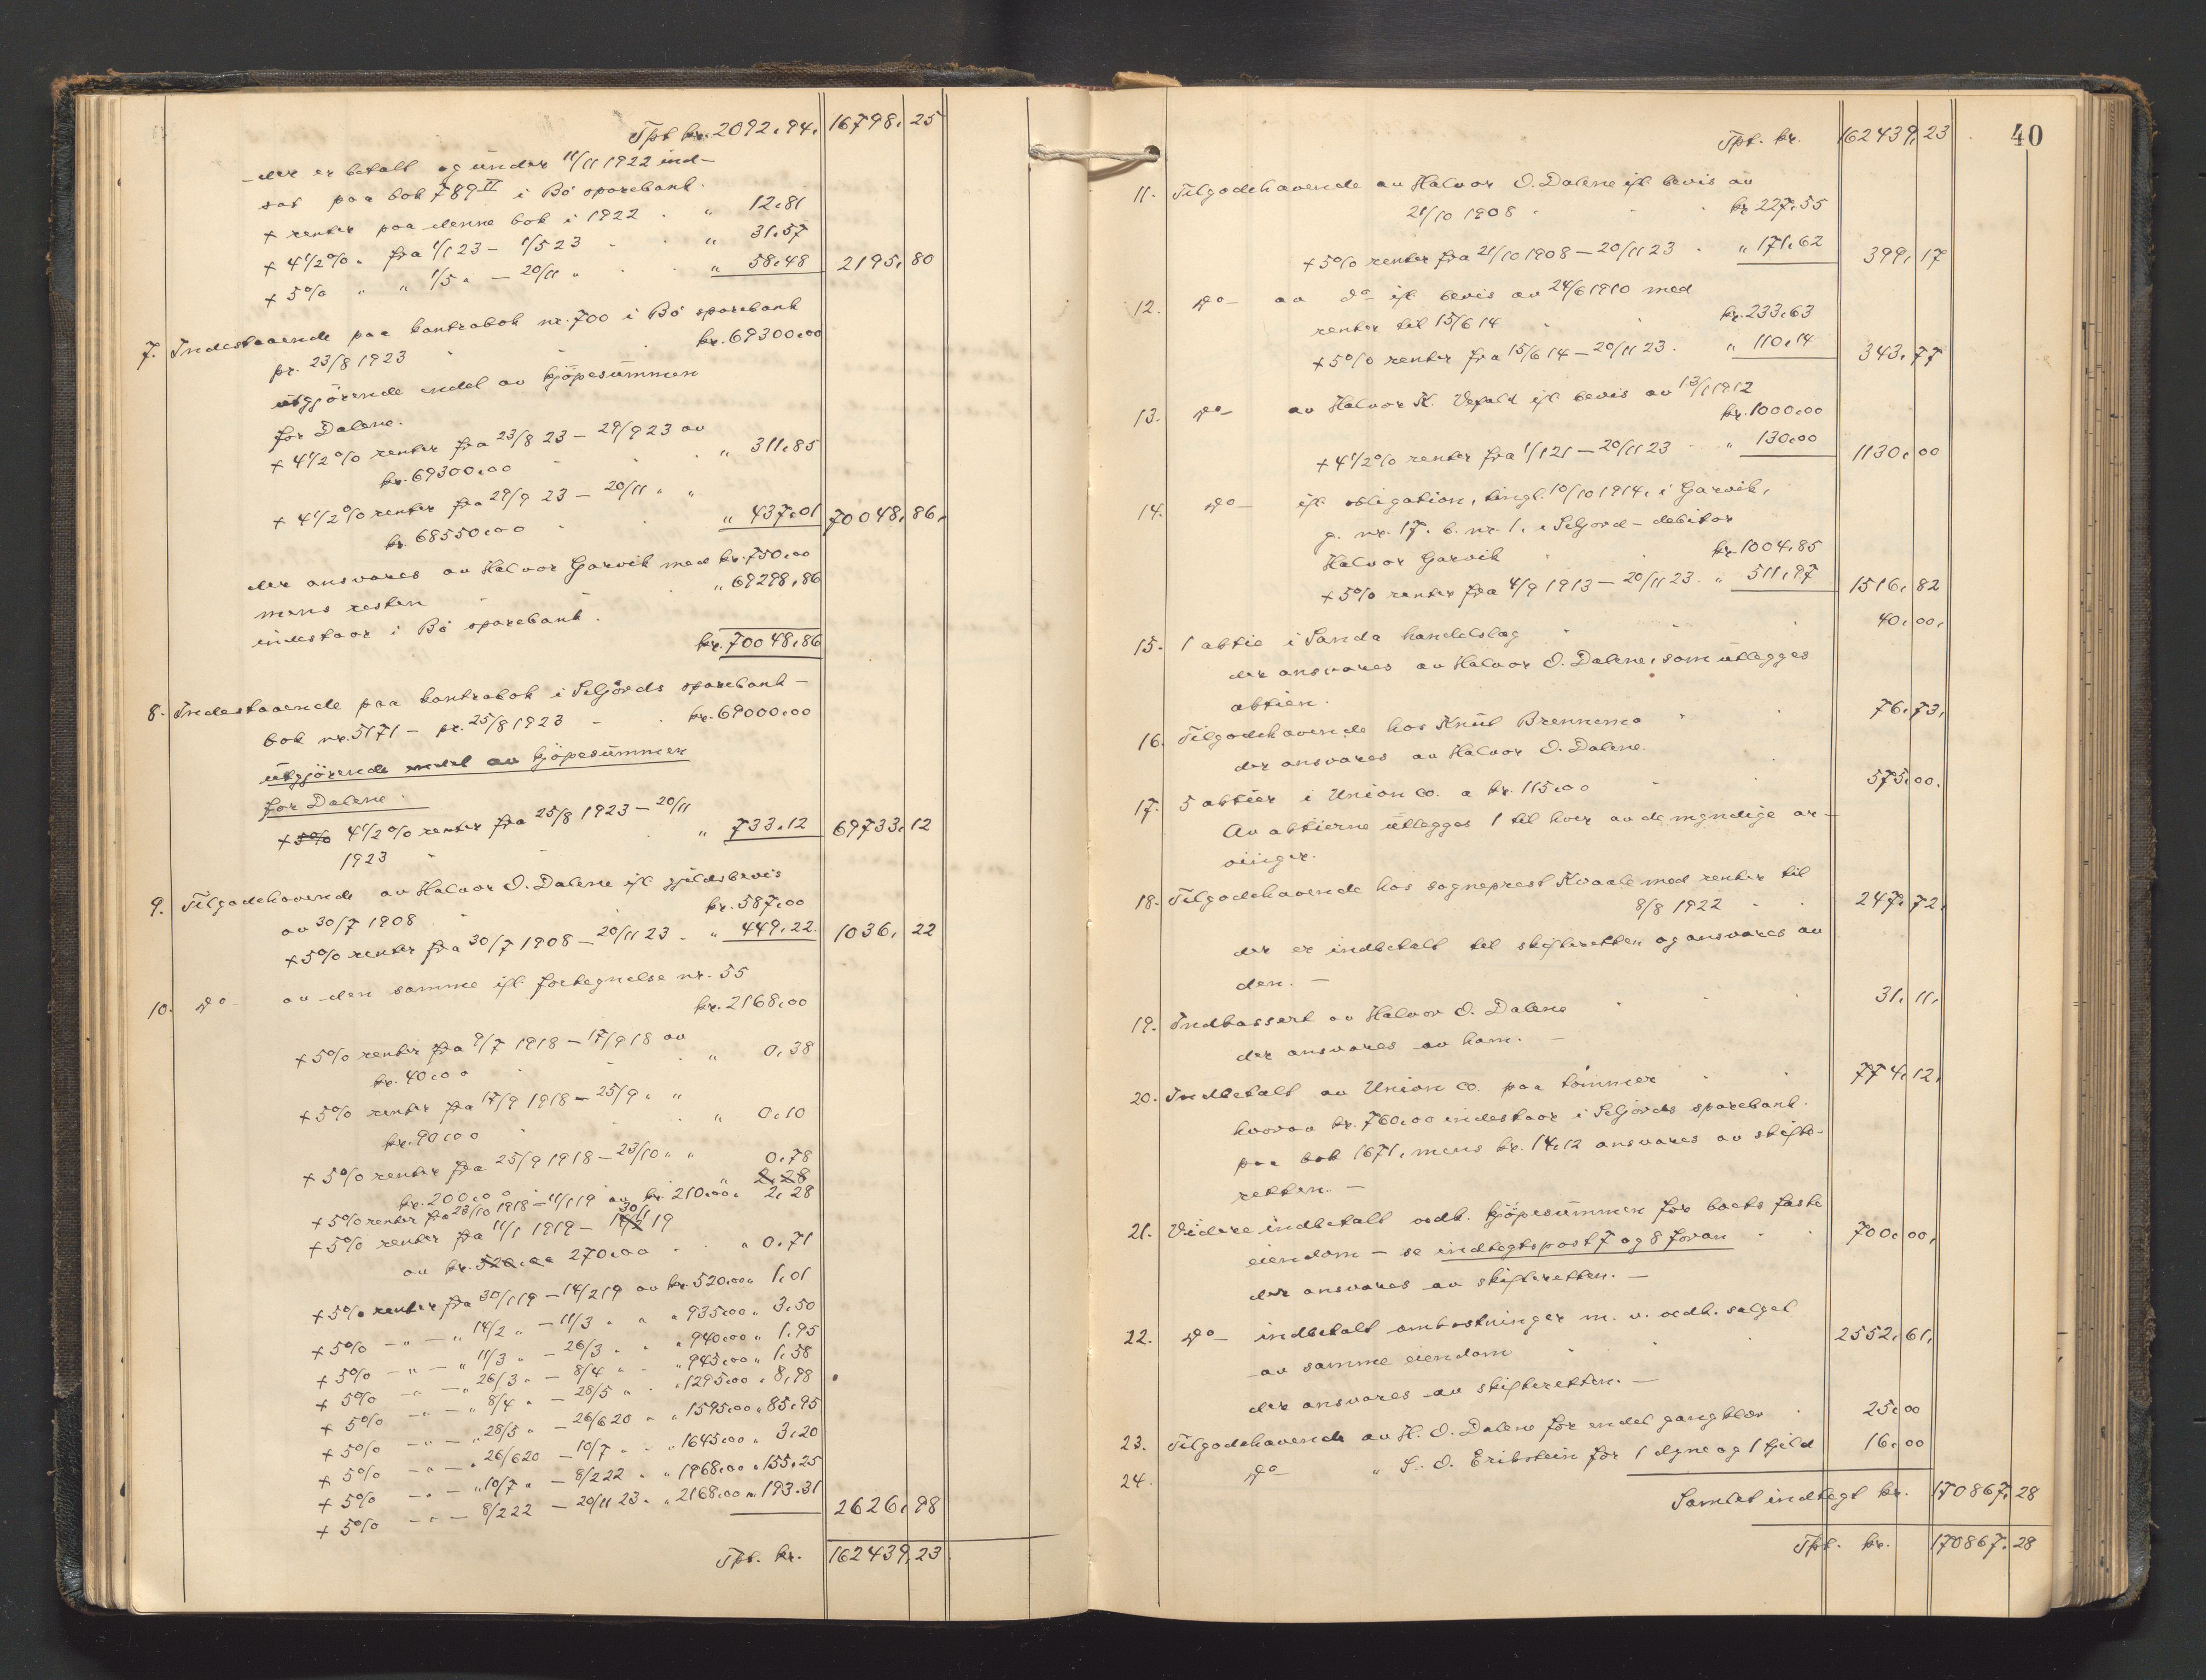 Tpt kr. 2092,94. 16798,25
der er betalt og under 11/11 1922 ind-
sat paa bok 789 II i Bö sparebank.
+ renter paa denne bok i 1922 . " 12,81
+ 4 1/2 % " fra 1/1 23 - 1/5 23 . . " 31,57
+ 5 % " " 1/5 " - 20/11 " . . " 58,48 2195,80
7. Indestaaende paa kontrabok nr. 700 i Bö sparebank
pr. 23/8 1923 . . . kr. 69300,00
utgjörende endel av kjöpesummen
for Dalene.
+ 4 1/2 % renter fra 23/8 23 - 29/9 23 av
kr. 69300,00 . . . " 311,85
+ 4 1/2 % renter fra 29/9 23 - 20/11 " "
kr. 68550,00 . . " 437,01 70048,86,
der ansvares av Halvor Garvik med kr. 750,00
mens resten . . . " 69298,86
indestaar i Bö sparebank.
kr. 70048,86
8. Indestaaende paa kontrabok i Seljords sparebank -
bok nr. 5171 - pr. 25/8 1923 - . kr. 69000,00
utgjörende endel av kjöpesummen
for Dalene.
+ 5% 4 1/2 % renter fra 25/8 1923 - 20/11
1923 . . . " 733,12 69733,12
9. Tilgodehavende av Halvor O. Dalene ifl gjeldsbevis
av 30/7 1908 . . kr. 587,00
+ 5% renter fra 30/7 1908 - 20/11 23 . " 449,22. 1036,22
10. Do - av den samme ifl. fortegnelse nr. 55
kr. 2168,00
+ 5% renter fra 9/7 1918 - 17/9 18 av
kr. 40,00 . . " 0,38
+ 5% renter fra 17/9 1918 - 25/9 " "
kr. 90,00 . . . " 0,10
+ 5% renter fra 25/9 1918 - 23/10 " " 0,78
kr. 200,00 . . " 2,28
+ 5% renter fra 23/10 1918 - 11/1 19 av kr. 210,00 " 2,28
+ 5% renter fra 11/1 1919 - 14/2 30/1 19
av kr. 520,00 270,00 . . " 0,71
+ 5% renter fra 30/1 19 - 14/2 19 av kr. 520,00 " 1,01
+ 5% - " - " 14/2 " - 11/3 " " " 935,00 " 3,50
+ 5% - " - " 11/3 " - 26/3 " " " 940,00 " 1,95
+ 5% - " - " 26/3 " - 8/4 " - " 945,00 " 1,58
+ 5% - " - " 8/4 " - 28/5 " " 1295,00 " 8,98
+ 5% - " - " 28/5 " - 26/6 20 " " 1595,00 " 85,95
+ 5% - " - " 26/6 20 - 10/7 " " " 1645,00 " 3,20
+ 5% - " - " 10/7 " - 8/2 22 " " 1968,00 " 155,25
+ 5% - " - 8/2 22 - 20/11 23 " " 2168,00 " 193,31 2626,98
Tpt. kr. 162439,23
40
Tpt. kr. 162439,23
11. Tilgodehavende av Halvor O. Dalene ifl. bevis av
21/10 1908 . . . kr 227,55
+ 5% renter fra 21/10 1908 - 20/11 23 . " 171,62 399,17
12. Do - av do - ifl. bevis av 24/6 1910 med
renter til 15/6 14 . . kr. 233,63
+ 5% renter fra 15/6 14 - 20/11 23 . " 110,14 343,77
13. Do - av Halvor K. Vefald ifl. bevis av 13/1 1912
kr. 1000,00
+ 4 1/2 % renter fra 1/1 21 - 20/11 23 . " 130,00 1130,00
14. Do - ifl. obligation, tingl. 10/10 1914, i Garvik,
g. nr. 17. b. nr. 1. i Seljord - debitor
Halvor Garvik . . kr. 1004,85
+ 5% renter fra 4/9 1913 - 20/11 23 . " 511,97 1516,82
15. 1 aktie i Sanda handelslag . . 40,00,
der ansvares av Halvor O. Dalene, som utlegges
aktien.
16. Tilgodehavende hos Knut Brennemo . . 76,73,
der ansvares av Halvor O. Dalene.
17. 5 aktier i Union co. a kr. 115,00 . . 575,00.
Av aktierne utlegges 1 til hver av de myndige ar-
vinger.
18. Tilgodehavende hos sogneprest Kvaale med renter til
8/8 1922 . . 247,72,
der er indbetalt til skifteretten og ansvares av
den. -
19. Indkassert av Halvor O. Dalene . . . 31,11,
der ansvares av ham. -
20. Indbetalt av Union co. paa tömmer . . 774,12,
hvorav kr. 760,00 indestaar i Seljords sparebank.
paa bok 1671, mens kr. 14,12 ansvares av skifte-
retten. -
21. Videre indbetalt vedk. kjöpesummen for boets faste
eiendom - se indtegtspost 7 og 8 foran . . 700,00,
der ansvares av skifteretten. -
22. Do - indbetalt omkostninger m. v. vedk. salget
av samme eiendom . . 2552,61,
der ansvares av skifteretten. -
23. Tilgodehavende av H. O. Dalene for endel gangklær . 25,00
24. Do - " S. O. Erikstein for 1 dyne og 1 fjeld 16,00
Samlet indtegt kr. 170867,28
Tpt. kr. 170867,28